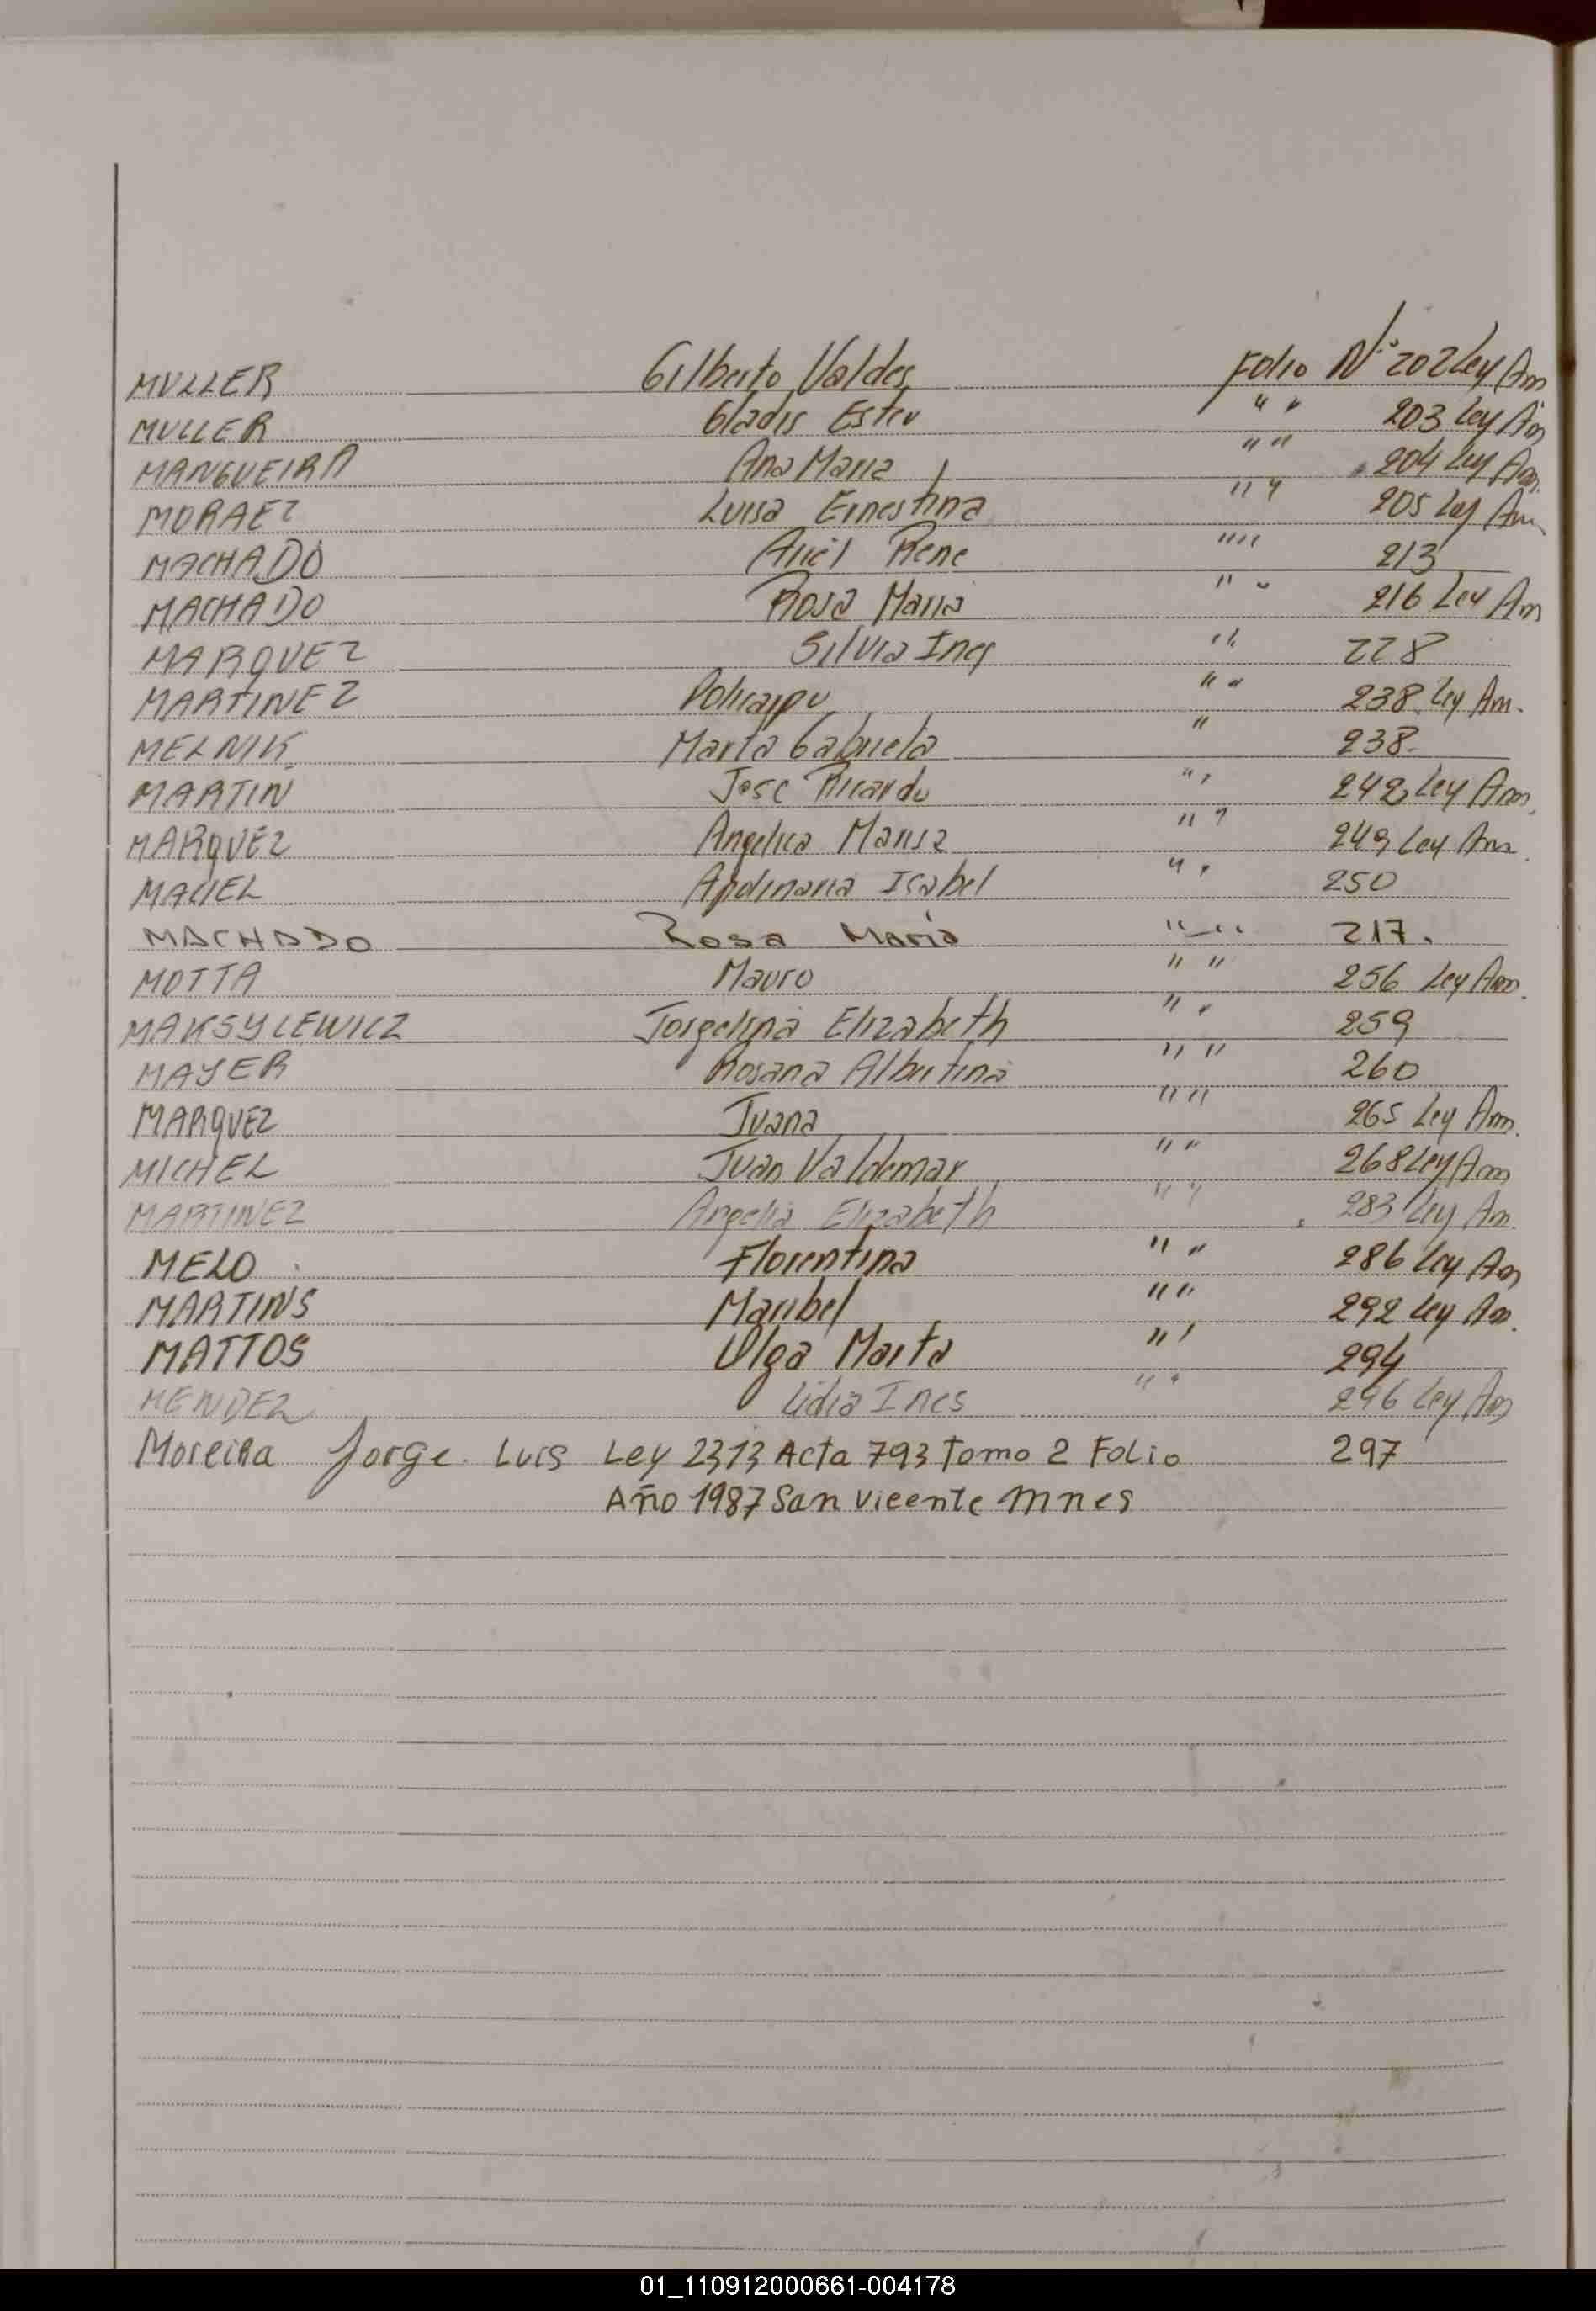 MULLER Gilberto Valdes Folio Nº 202 Ley Am
MULLER Gladis Ester " " 203 Ley Am
MANGUEIRA Ana Maria " " 204 Ley Am.
MORAEZ Luisa Ernestina " " 205 Ley Am
MACHADO Ariel Rene " " 213
MACHADO Rosa Maria " " 216 Ley Am
MARQUEZ Silvia Ines " " 228
MARTINEZ Policarpo " " 238 Ley Am.
MELNIK Marta Gabriela " 238.
MARTIN Jose Ricardo " " 242 Ley Am.
MARQUEZ Angelica Marisa " " 249 Ley Am.
MACIEL Isabel " " 250
MACHADO Rosa Maria " " 217.
MOTTA Mauro " " 256 Ley Am.
MAKSYLEWICZ Jorgelina Elizabeth " " 259
MAYER Rosana Albertina " " 260
MARQUEZ Juana " " 265 Ley Am.
MICHEL Juan Valdemar " " 268 Ley Am
MARTINEZ Angelia Elizabeth " " 283 Ley Am.
MELO Florentina " " 286 Ley Am
MARTINS Maribel " " 292 Ley Am.
MATTOS Olga Marta " " 294
MENDEZ Lidia Ines " " 296 Ley Am
Moreira Jorge Luis Ley 2313 Acta 793 Tomo 2 Folio 297
Año 1987 San Vicente Mnes
01_110912000661-004178